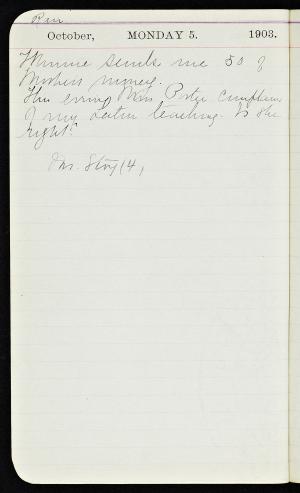 Rain
October, MONDAY 5. 1903.
Minnie sends me 50 of
Mothers money.
This evening Miss Porter complains
of my Latin teaching. Is she
right?
Mr. Story (4,